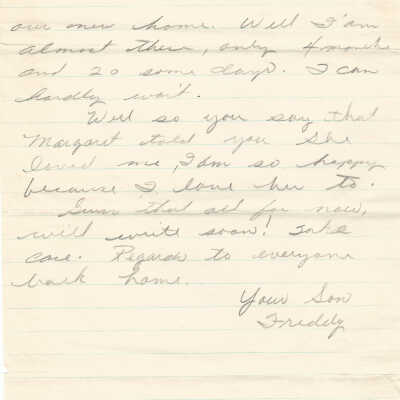 our new home. Well I'am
almost there, only 4 months
and 20 some days. I can
hardly wait.
Well so you say that
Margaret told you she
loved me, I am so happy
because I love her to.
Guess that all for now,
will write soon! Take
care. Regards to everyone
back home.
Your Son
Freddy